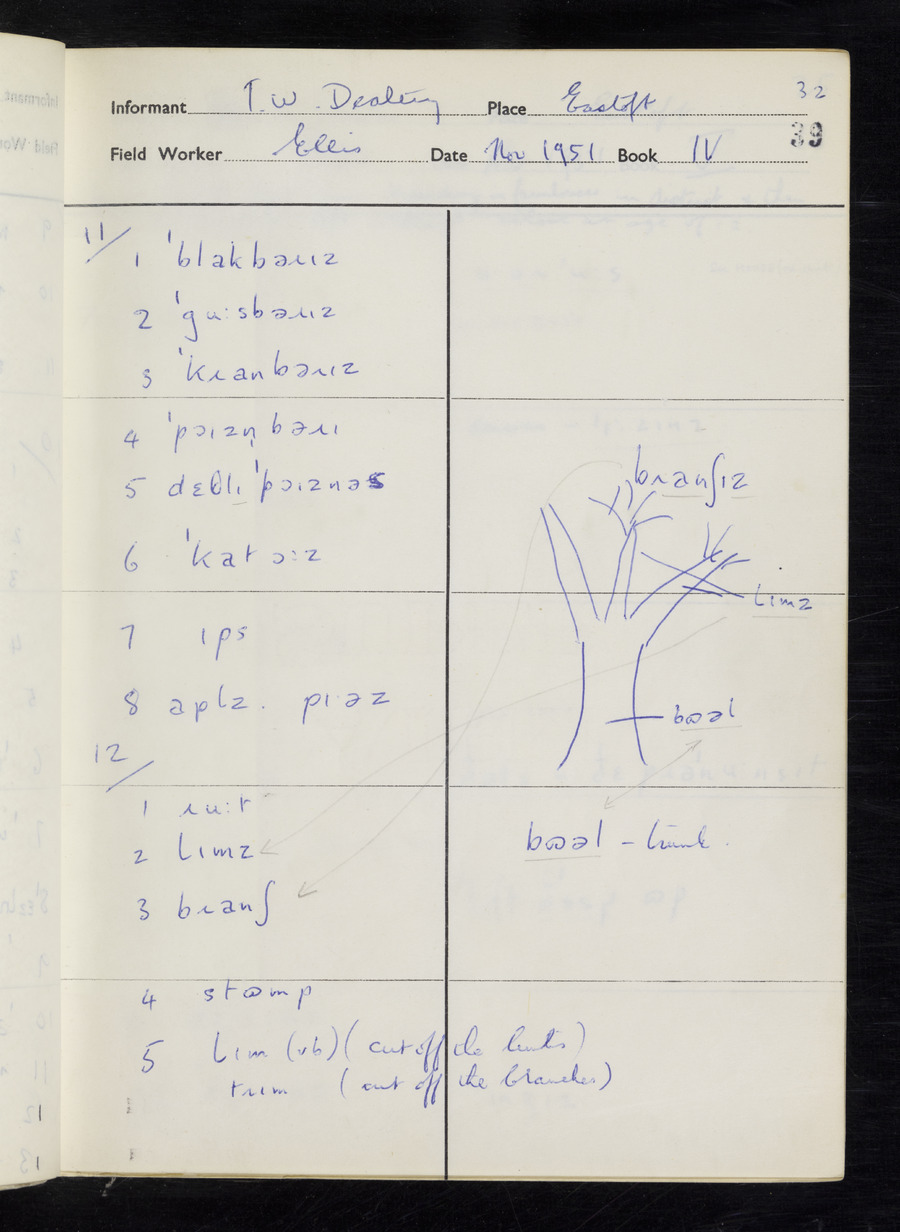 32
Informant T. W. Dealtry Place Eastoft
39
Field Worker Ellis Date Nov 1951 Book IV
11/
1 ˈblakbəɹɪz
2 ˈguːsbəɹɪz
3 ˈkɹanbəɹɪz
4 ˈpɔɪzn̩bəɹɪ
5 ˈpɔɪznəs
6 ˈkatɔːz
7 ɪps
8 aplz. pɪəz
12/
1 ɹuːt
2 lɪmz
3 bɹanʃ
4 stʊmp
5 lɪm (vb) (cut off the limbs)
trɪm (cut off the branches)
bɹanʃɪz
lɪmz
bʊəl
bʊəl – trunk.